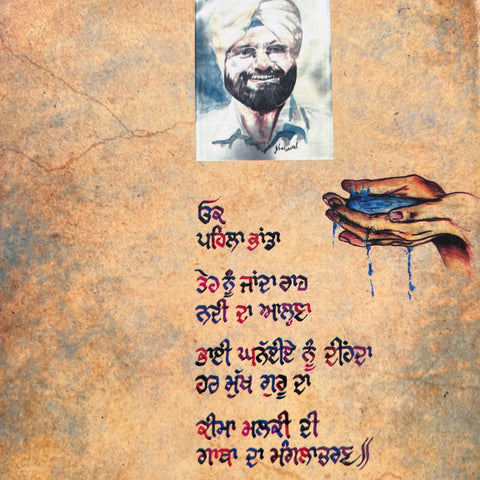 ਓਕ
ਪਹਿਲਾ ਭਾਂਡਾ
ਤੇਹ ਨੂੰ ਜਾਂਦਾ ਰਾਹ
ਨਦੀ ਦਾ ਆਲ੍ਹਣਾ
ਭਾਈ ਘਨੱਈਏ ਨੂੰ ਦੀਂਹਦਾ
ਹਰ ਮੁੱਖ ਗੁਰੂ ਦਾ
ਕੀਮਾ ਮਲਕੀ ਦੀ
ਗਾਥਾ ਦਾ ਮੰਗਲਾਚਰਣ॥